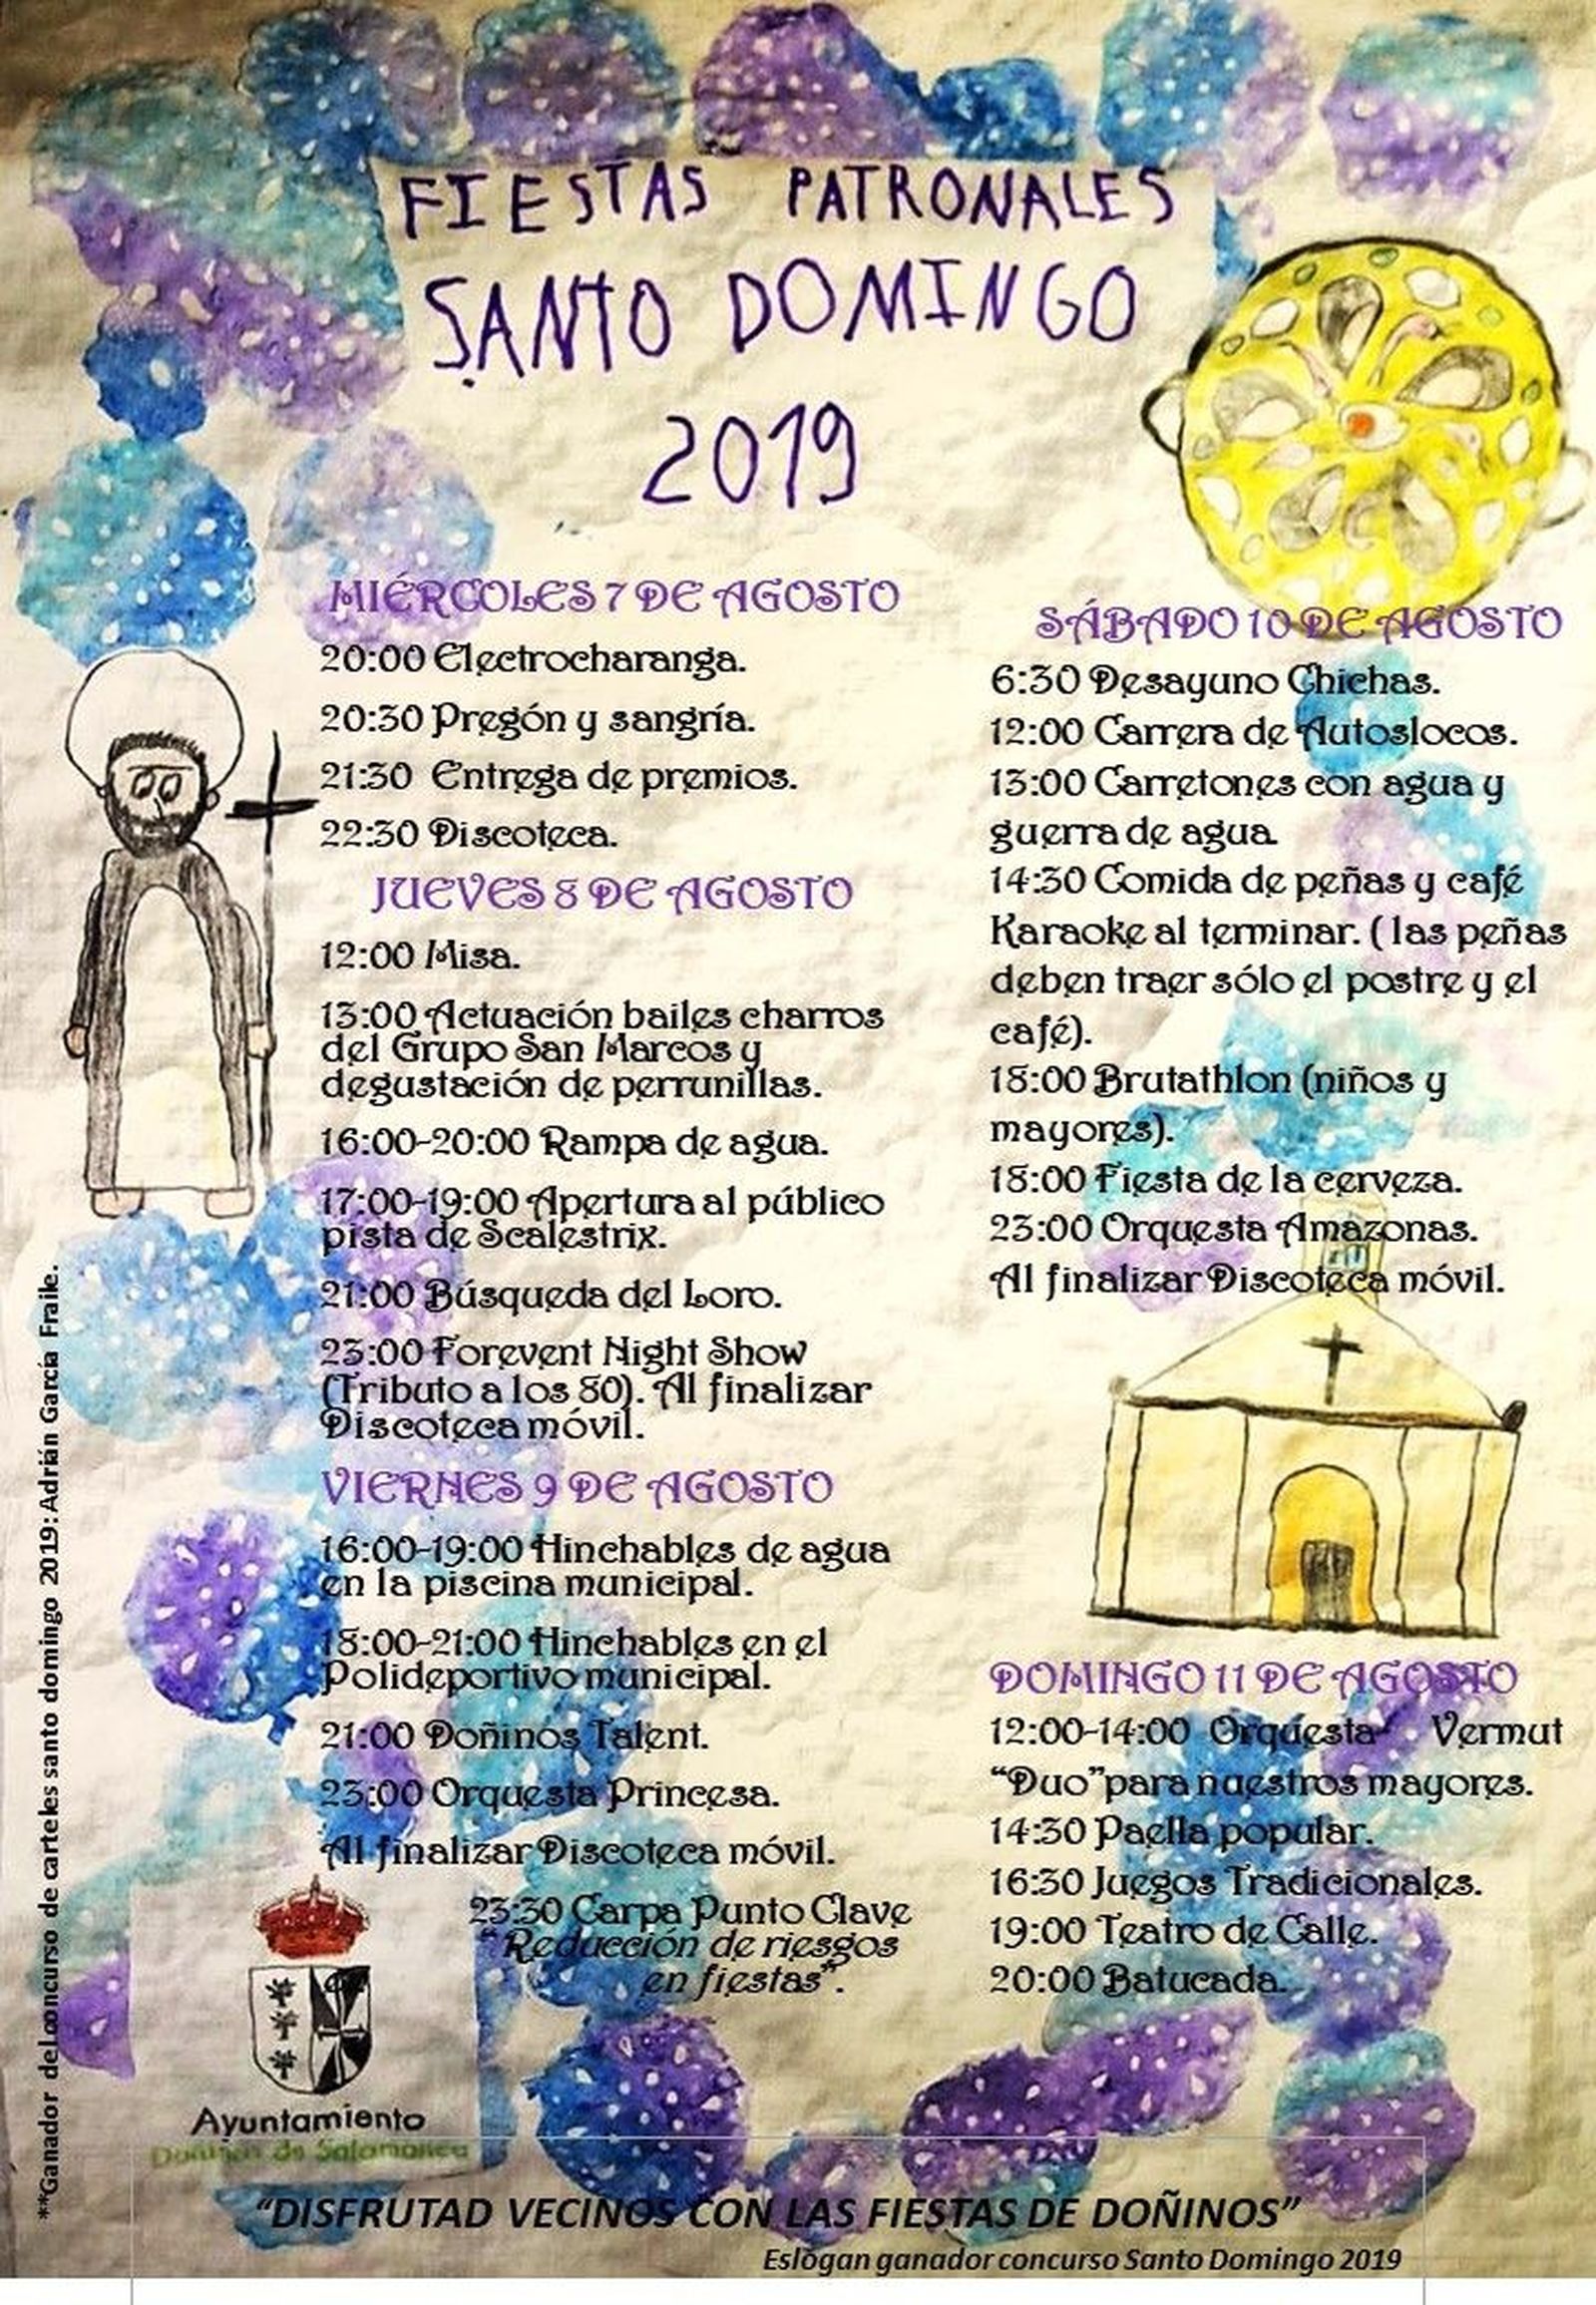 FIESTAS PATRONALES
SANTO DOMINGO
2019
MIÉRCOLES 7 DE AGOSTO
20:00 Electrocharanga.
20:30 Pregón y sangría.
21:30 Entrega de premios.
22:30 Discoteca.
JUEVES 8 DE AGOSTO
12:00 Misa.
13:00 Actuación bailes charros
del Grupo San Marcos y
degustación de perrunillas.
16:00-20:00 Rampa de agua.
17:00-19:00 Apertura al público
pista de Scalestrix.
21:00 Búsqueda del Loro.
23:00 Forevent Night Show
(Tributo a los 80). Al finalizar
Discoteca móvil.
VIERNES 9 DE AGOSTO
16:00-19:00 Hinchables de agua
en la piscina municipal.
18:00-21:00 Hinchables en el
Polideportivo municipal.
21:00 Doñinos Talent.
23:00 Orquesta Princesa.
Al finalizar Discoteca móvil.
23:30 Carpa Punto Clave
“Reducción de riesgos
en fiestas”.
SÁBADO 10 DE AGOSTO
6:30 Desayuno Chichas.
12:00 Carrera de Autoslocos.
13:00 Carretones con agua y
guerra de agua.
14:30 Comida de peñas y café
Karaoke al terminar. ( las peñas
deben traer sólo el postre y el
café).
18:00 Brutathlon (niños y
mayores).
18:00 Fiesta de la cerveza.
23:00 Orquesta Amazonas.
Al finalizar Discoteca móvil.
DOMINGO 11 DE AGOSTO
12:00-14:00 Orquesta Vermut
“Duo”para nuestros mayores.
14:30 Paella popular.
16:30 Juegos Tradicionales.
19:00 Teatro de Calle.
20:00 Batucada.
**Ganador del concurso de carteles santo domingo 2019: Adrián García Fraile.
Ayuntamiento
Doñinos de Salamanca
“DISFRUTAD VECINOS CON LAS FIESTAS DE DOÑINOS”
Eslogan ganador concurso Santo Domingo 2019